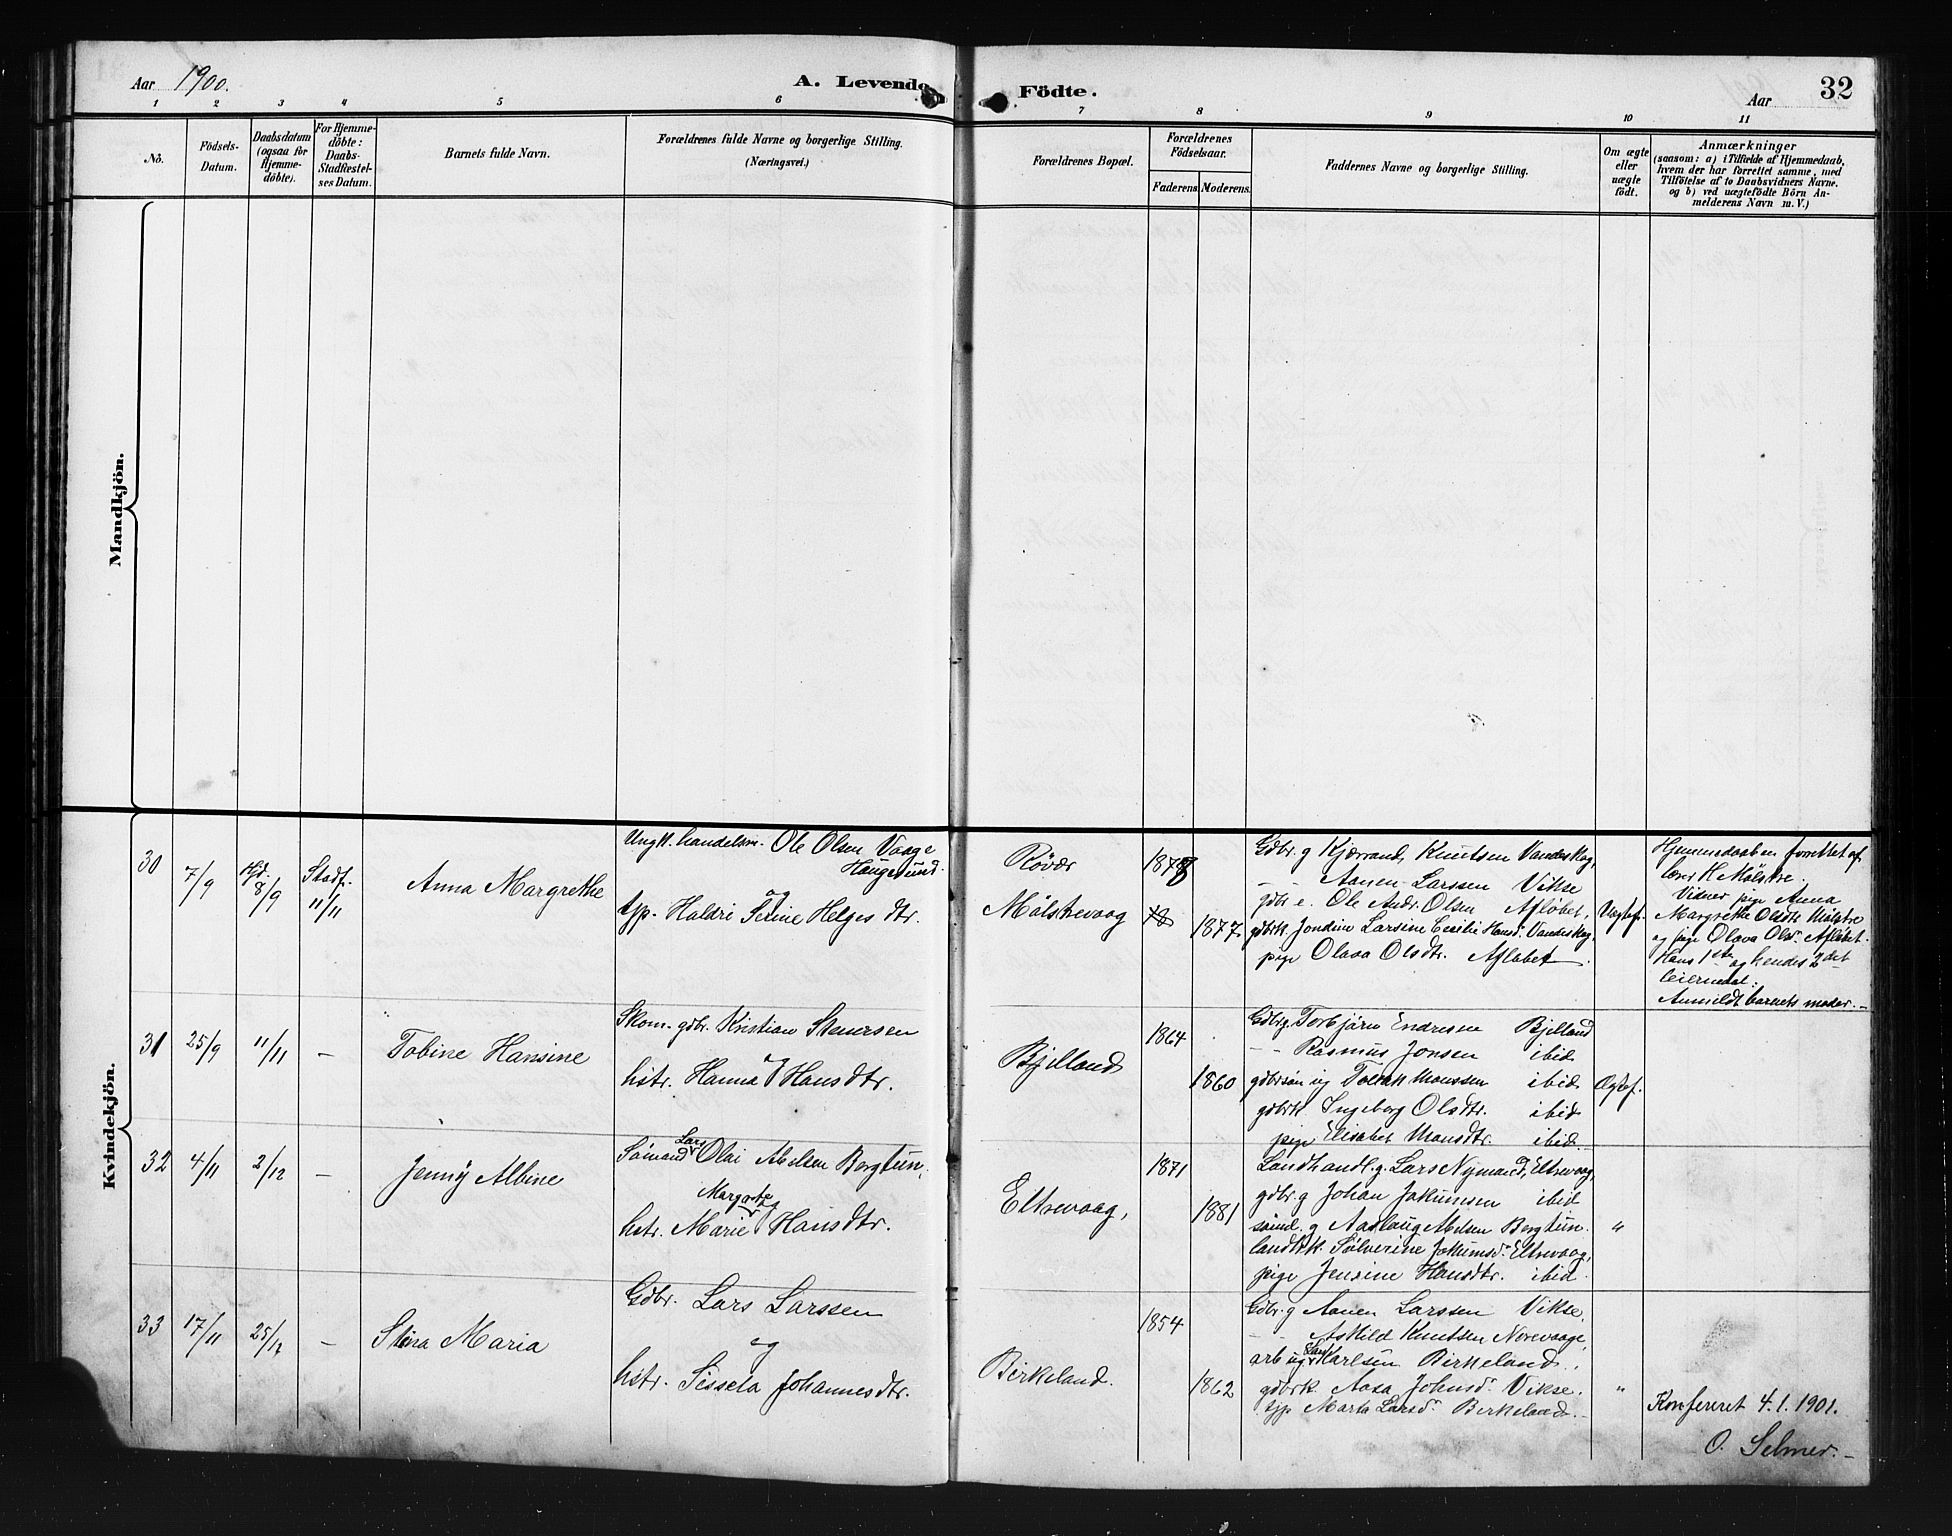 Aar 1900.
A. Levende Födte.
Aar
32
1 2 3 4 5 6 7 8 9 10 11
No.
Födsels-
Datum.
Daabsdatum
(ogsaa for
Hjemme-
döbte).
For Hjemme-
döbte:
Daabs-
Stadfæstel-
ses Datum.
Barnets fulde Navn.
Forældrenes fulde Navne og borgerlige Stilling.
(Næringsvei.)
Forældrenes Bopæl.
Forældrenes
Födselsaar.
Faderens. Moderens.
Faddernes Navne og borgerlige Stilling.
Om ægte
eller
uægte
födt.
Anmærkninger
(saasom: a) i Tilfælde af Hjemmedaab,
hvem der har forrettet samme, med
Tilföielse af to Daabsvidners Navne.
og b) ved uægtefödte Börn An-
melderens Navn m. V.)
Mandkjön.
Kvindekjön.
30
7/9
Hjd.
8/9
Stadf.
11/11
Anna Margrethe
Ungk. handelsm. Ole Olsen Vaage
Haugesund.
og
Haldri Serine Helges dtr.
Røvær
Mølstrevaag
1878
1877.
Gdbr. g Kjærrand Knutsen Vandeskog,
- - Aanen Larssen Vikse
Ole Andr. Olsen Afløbet,
gdbrk Jondine Larsine Cecilie Hansd. Vandeskog,
pige Olava Olsdtr. Afløbet.
Uægtef.
Hjemmedaaben forrettet af
lærer K Mølstre.
Vidner pige Anna
Margrethe Olsdtr Mølstre
og pige Olava Olsd. Afløbet.
Hans 1ste og hendes 2det
leiermaal.
Anmeldt barnets moder. -
31
25/9
11/11
-
Tobine Hansine
Skom. gdbr. Kristian Steuersen
og
hstr. Hanna Hansdtr.
Bjelland
1864
1860
Gdbr.g Torbjørn Endresen Bjelland
- - Rasmus Jonsen ibid
gdbrsøn ug Tollak Monssen ibid
gdbrk Ingeborg Olsdtr. ibid
pige Elisabet Monsdtr. ibid
Ægtef.
32
4/11
2/12
-
Jenny Albine
Sømand Lars Olai Abelsen Bergtun,
og
hstr. Marie Margrete Hansdtr.
Eltrevaag,
1871
1881
Landhandl. g. Lars Nymand, Eltrevaag,
gdbr. g Johan Jakumsen ibid
sømd. g Aaslaug Abelsen Bergtun.
landhk. Sølverine Jokumsd. Eltrevaag,
pige Jensine Hansdtr. ibid.
"
33
17/11
25/12
-
Stina Maria
Gdbr. Lars Larssen
og
hstr. Sissela Johannesdtr.
Birkeland.
1854
1862
Gdbr. g Aanen Larssen Vikse,
- - Askild Knutsen Norevaage,
arb ug Lars Karlsen Birkeland,
gdbrk. Aasa Johnsd. Vikse.
Marta Larsd. Birkeland. -
"
Konfereret 4.1.1901.
O. Selmer. -